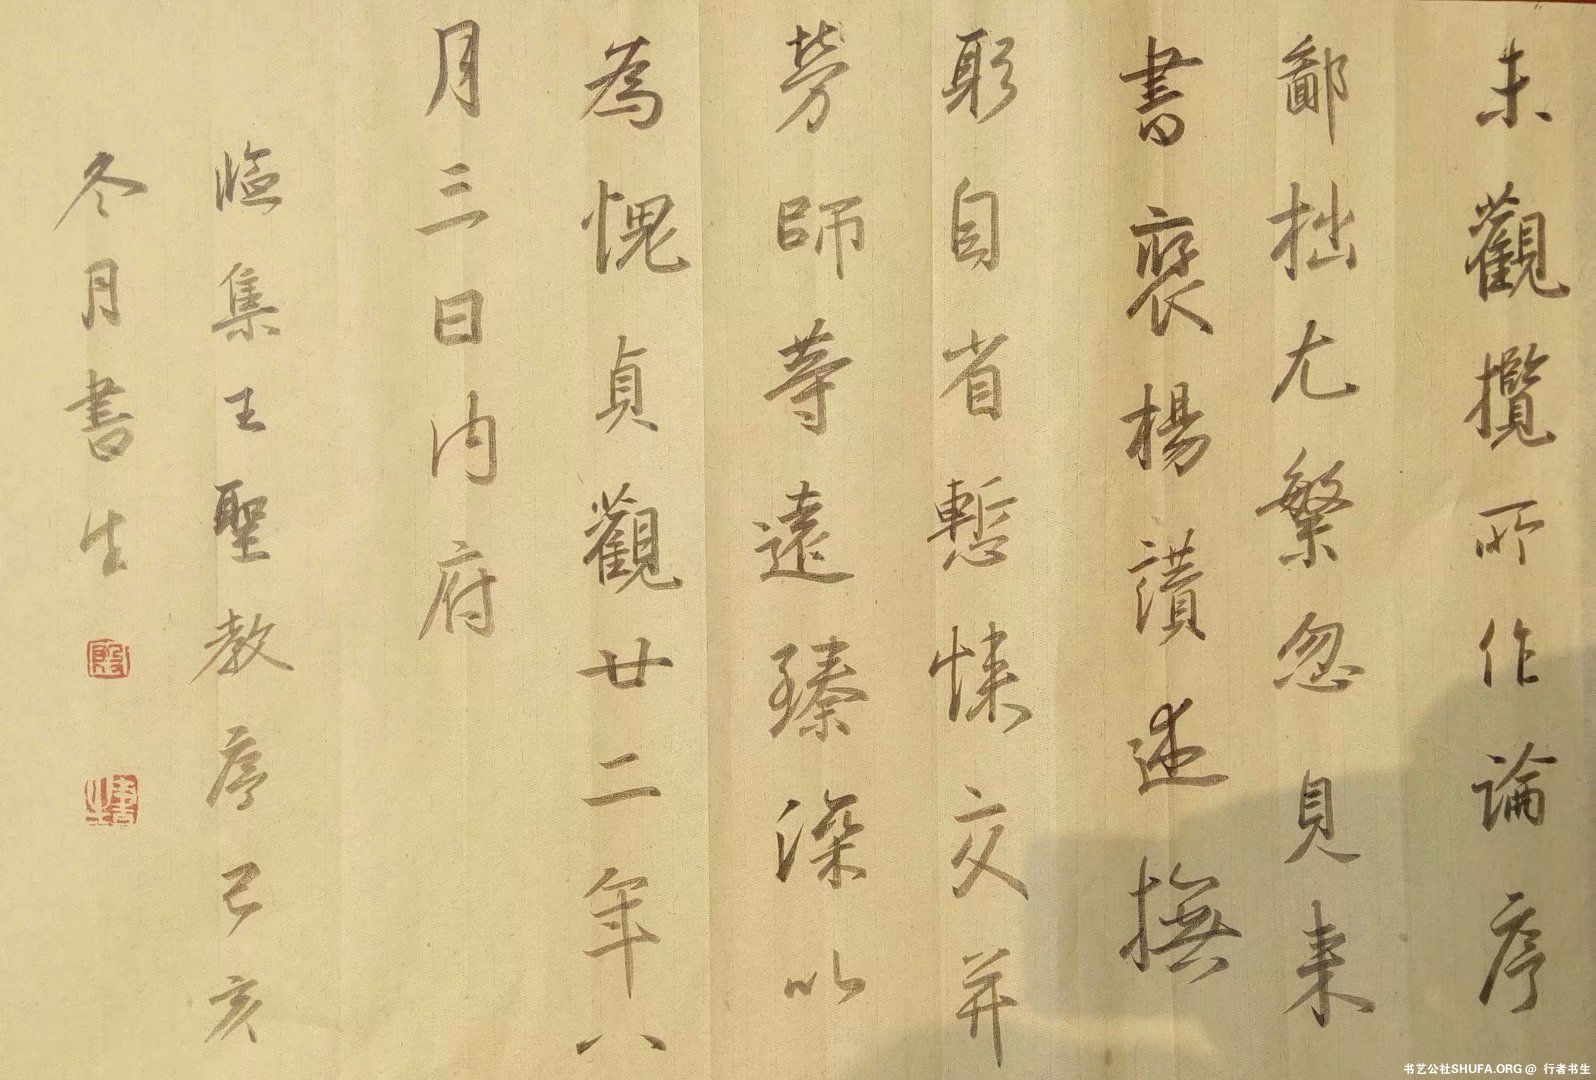 未觀攬所作論序
鄙拙尤繁忽見来
書褒揚讃述撫
躬自省慙悚交并
勞師等遠臻深以
為愧貞觀廿二年八
月三日内府
臨集王聖教序己亥
冬月書生
書艺公社SHUFA.ORG @ 行者书生